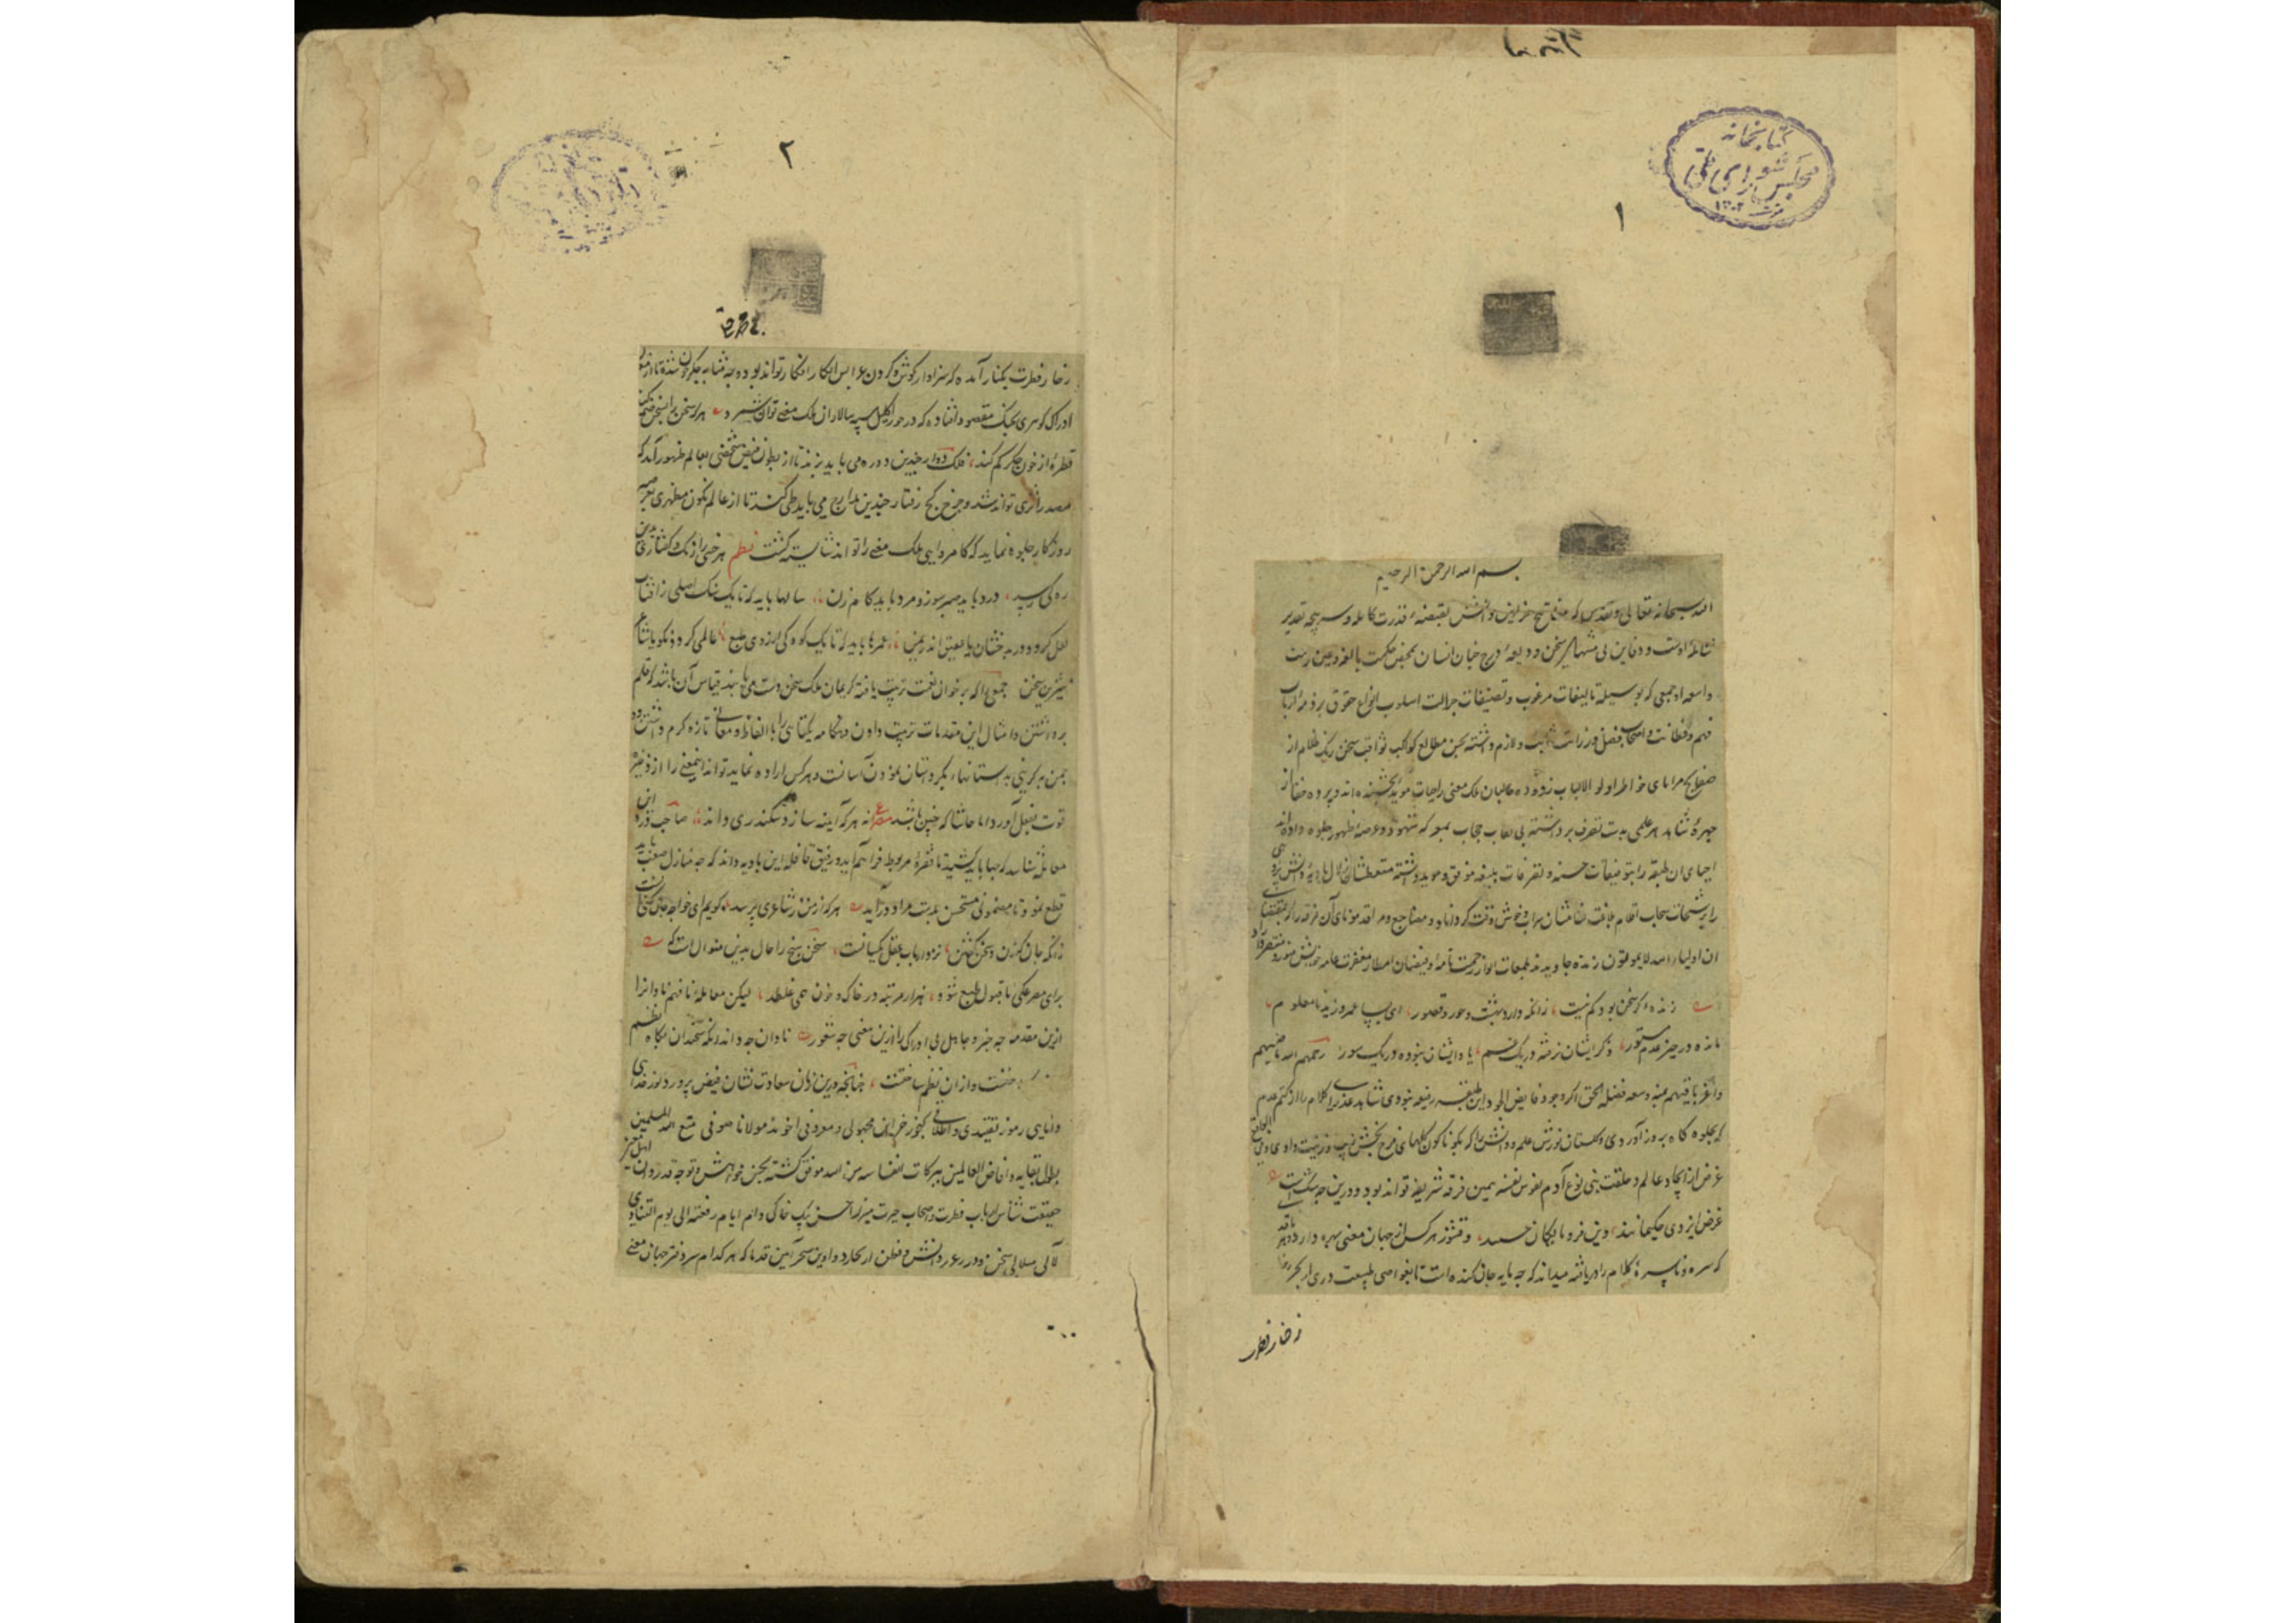 کتابخانه
مجلس شورای ملی
۱۳۰۲
۱
بسم الله الرحمن الرحیم
الله سبحانه تعالی و تقدس که مفاتیح خزاین دانش بقبضهٔ قدرت کامله و سرپنجه تقدیر
شاملهٔ اوست و دفاین بی‌منتهای سخن ودیعهٔ درج جنان انسان بمحض حکمت بالغه و عین رحمت
واسعه او جمعی که بوسیله تالیفات مرغوب و تصنیفات جزالت اسلوب انواع حقوق بر ذمهٔ ارباب
فهم و فطانت و اصحاب فضل و رزانت ثابت و لازم داشته بحسن مطالع کواکب ثواقب سخن زنگ ظلام از
صفایح مرایای خواطر اولو الالباب زدوده طالبان ملک معنی را حیات موید بخشنده‌اند و پرده خفا از
چهرهٔ شاهد هر علمی بدست تصرف برداشته بی نقاب حجاب بمعرکه شهود و عرصهٔ ظهور جلوه داده‌اند
احیای ان طبقه را بتوفیقات حسنه و تصرفات بلیغه موفق و موید داشته متعطشان زلال بادیهٔ دانش پژوهی
را برشحات سحاب اقلام بلاغت نشان سیراب و خوش وقت گرداناد و مضاجع و مراقد موتای آن فرقه را که بمقتضای
ان اولیاء الله لایموتون زنده جاویدند بلمعات انوار رحمت تامه و فیضان امطار مغفرت عامه خویش منور و
زنده اگر سخن بود کم نیست زانکه دارد بهشت و حور و قصور
مانده در حیز عدم مستور ذکر ایشان نرفته در یک قسم یاد ایشان نبوده در یک سور رحمهم الله ماضیهم
و اعز باقیهم منه و سعه فضله الحق اگر وجود فایض الجود این طبقه رفیعه نبودی شاهد عذرای کلام را از کتم عدم
که بجلوه گاه بروز آوردی و گلستان نورس علم و دانش را که بگوناگون گلهای فرح بخش زیب و زینت دادی
غرض از ایجاد عالم و خلقت بنی نوع آدم نفوس نفیسه همین فرقه شریفه تواند بود و درین چه شک است
غرض ایزدی حکیمانند وین فرومایگان حسند و قشور هر کس از جهان معنی بهره دارد و هر ناقد
که سره و ناسرهٔ کلام را دریافته میداند که چه مایه جان کنده است تا بغواصی طبیعت دری از بحر
زخار فطرت
۲
زخار فطرت بکنار آمده که سزاوار گوش کردن عرایس ابکار افکار تواند بود و چه مثابه جگر خون شده تا از معدن
ادراک گوهری بچنگ مقصود افتاده که در خور اکلیل سپه سالاران ملک معنی توان شمرد هر که سخن را بسخن ضم کند
قطرهٔ از خون جگر کم کند فلک دوار چندین دوره می باید بزند تا از بطون فیض شخصی بعالم ظهور آید که
مصدر اثری تواند شد و چرخ کج رفتار چندین مدارج می باید طی کند تا از عالم کمون مظهری بعرصه
روزگار جلوه نماید که کامروایی ملک معنی را تواند شایسته گشت نظم هر خسی از رنگ و گفتاری بدین
ره کی رسد درد باید صبر سوز و مرد باید گام زن سالها باید که تا یک سنگ اصلی ز افتاب
لعل گردد در بدخشان یا عقیق اندر یمن عمرها باید که تا یک کودکی از روی طبع عالمی گردد نکو یا شاعری
شیرین سخن جمعی را که بر خوان نعمت تربیت یافته کریمان ملک سخن دست می یابند قیاس آن باشد که قلم
برداشتن و امثال این مقدمات ترتیب دادن و هنگامه یکتائی را با الفاظ و معانی تازه گرم داشتن و
قوت بفعل آورد اما حاشا که چنین باشد مصراع نه هر که آینه سازد سکندری داند صاحب
معامله شناسد که چها باید کشید تا فقرهٔ مربوط فراهم آید و رفیق قافله این بادیه داند که چه منازل صعب باید
قطع نمود تا مضمونی مستحسن بدست مراد درآید هر که از من ز شاعری پرسد گویم ای خواجه جان کنی است
زانکه جان کندن و سخن گفتن نزد ارباب عقل یکسانست سخن سنج را حال بدین منوال است که
برای مصرعکی تا قبول طبع شود هزار مرتبه در خاک و خون همی غلطد لیکن معامله نافهم نادان را
ازین مقدمه چه خبر و جاهل بی ادراک را ازین معنی چه شعور نادان چه داند آنکه سخندان نگاه نظم
چنانچه درین زمان سعادت نشان فیض پرورد نور خدایی
دانایی رموز تقییدی و اطلاقی گنجور خزاین مجهولی و معروفی اخوند مولانا صوفی متع الله المسلمین
بطول بقایه و افاض العالمین ببرکات انفاسه من الله موفق گشته بحسن خواهش و توجه قدردان اهل هنر
حقیقت شناس ارباب فطرت و اصحاب حیرت میرزا حسن بیک خاکی دام ایام رفعته الی یوم التنادی
لآلی متلالی سخن و درر غرر دانش و فطن از بحار دواوین سحر آیین قدما که هر کدام سر دفتر جهان معنی